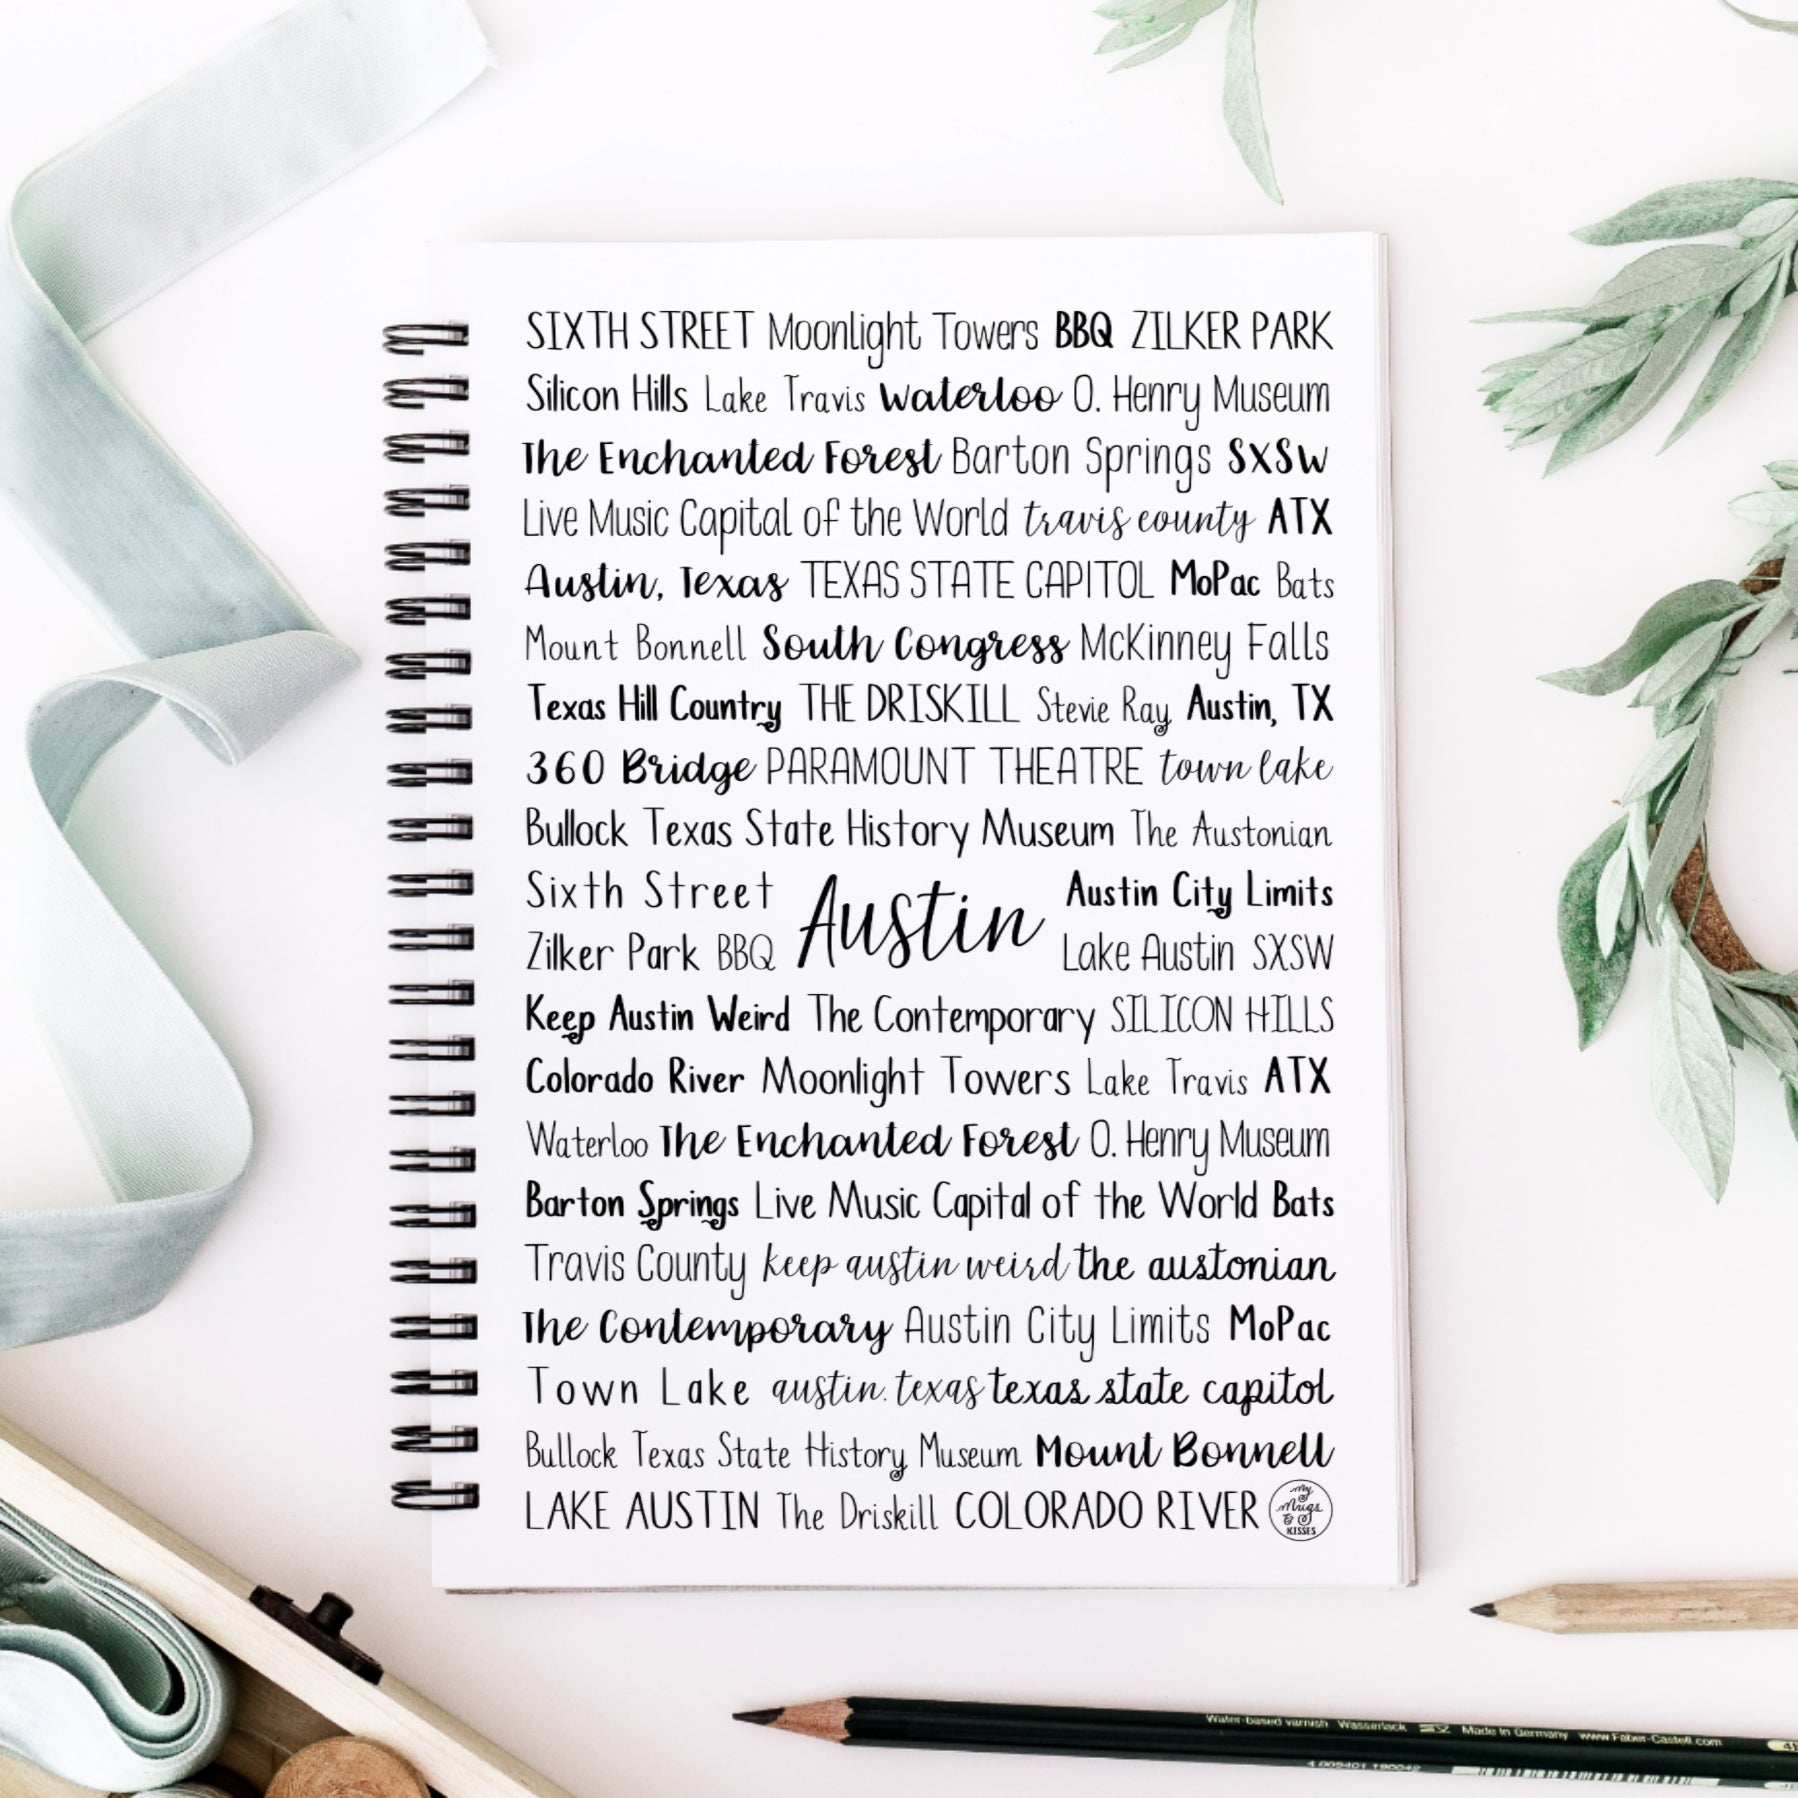 SIXTH STREET Moonlight Towers BBQ ZILKER PARK
Silicon Hills Lake Travis Waterloo O. Henry Museum
The Enchanted Forest Barton Springs SXSW
Live Music Capital of the World travis county ATX
Austin, Texas TEXAS STATE CAPITOL MoPac Bats
Mount Bonnell South Congress McKinney Falls
Texas Hill Country THE DRISKILL Stevie Ray Austin, TX
360 Bridge PARAMOUNT THEATRE town lake
Bullock Texas State History Museum The Austonian
Sixth Street Austin City Limits
Austin
Zilker Park BBQ Lake Austin SXSW
Keep Austin Weird The Contemporary SILICON HILLS
Colorado River Moonlight Towers Lake Travis ATX
Waterloo The Enchanted Forest O. Henry Museum
Barton Springs Live Music Capital of the World Bats
Travis County keep austin weird the austonian
The Contemporary Austin City Limits MoPac
Town Lake austin. texas texas state capitol
Bullock Texas State History Museum Mount Bonnell
LAKE AUSTIN The Driskill COLORADO RIVER
My
Mugs
&
KISSES
Water-based varnish Wasserlack Made in Germany www.Faber-Castell.com
4 005401 190042